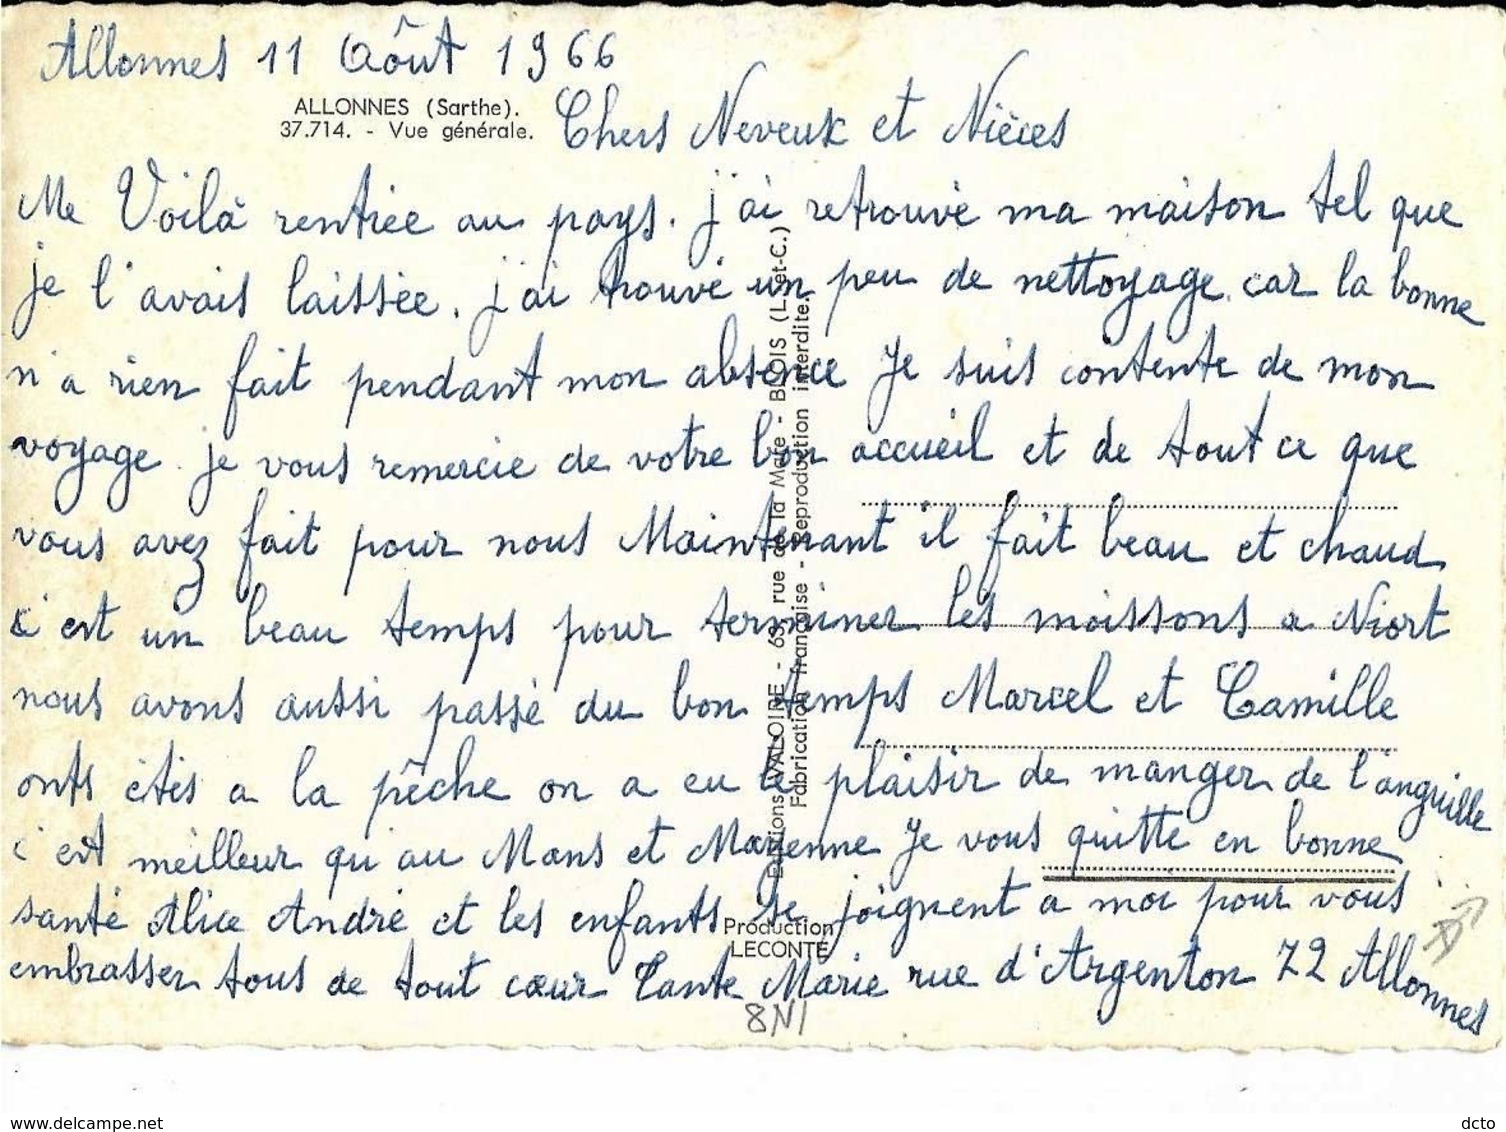 Allonnes 11 Aôut 1966
ALLONNES (Sarthe).
37.714. - Vue générale.
Chers Neveux et Nièces
Me Voilà rentrée au pays. j'ai retrouvé ma maison tel que
je l'avais laissée. j'ai trouvé un peu de nettoyage car la bonne
n'a rien fait pendant mon absence Je suis contente de mon
voyage je vous remercie de votre bon accueil et de tout ce que
vous avez fait pour nous Maintenant il fait beau et chaud
c'est un beau temps pour terminer les moissons a Niort
nous avons aussi passé du bon temps Marcel et Camille
onts étés a la pêche on a eu le plaisir de manger de l'anguille
c'est meilleur qu'au Mans et Mayenne Je vous quitte en bonne
santé Alice André et les enfants se joignent a moi pour vous
embrasser tous de tout cœur Tante Marie rue d'Argenton 72 Allonnes
Editions VALOIRE - 63, rue de la Mare - BLOIS (L.-et-C.)
Fabrication française - Reproduction interdite.
Production
LECONTE
8N1
www.delcampe.net
dcto